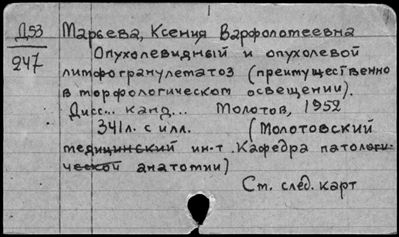 Д53
247
Марьева, Ксения Варфоломеевна
Опухолевидный и опухолевой
лимфогранулематоз (преимущественно
в морфологическом освещении).
Дисс... канд... Молотов, 1952
341л. с илл. (Молотовский
медицинский ин-т Кафедра патологи-
ческой анатомии)
См. след. карт